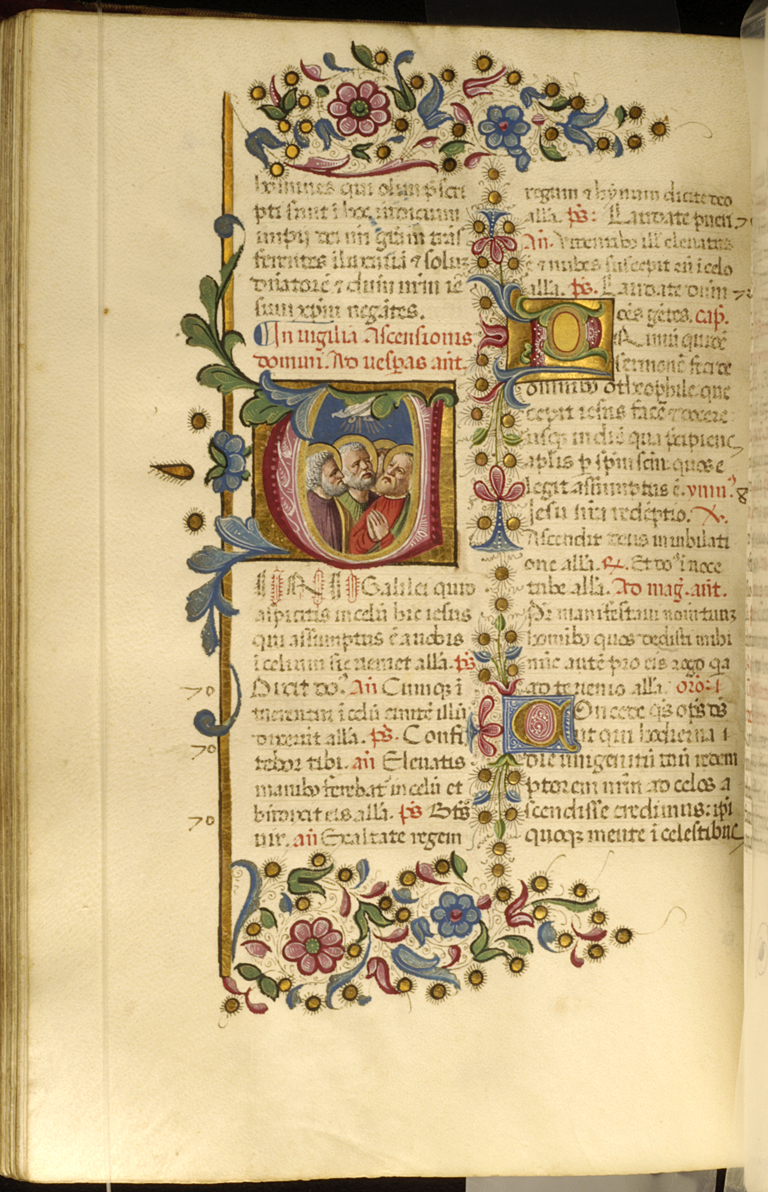 homines qui olim p̄scri
pti sunt ĩ hoc iudicium
impij dei nr̃i gr̃am trãs
ferentes ĩ luxuriã ⁊ solũ
dñatorẽ ⁊ dñm nrm̃ ie
sum xp̃m negãtes.
In uigilia Ascensionis
domini. Ad uesp̃as añt.
Galilei quid
aspicitis in celũ hic iesus
qui assumptus ẽ a uobis
ĩ celum sic ueniet allã. p̃s
Dixit dõ. añ Cumq̃ ĩ
tuerentur ĩ celũ eũtẽ illũ
dixerũt allã. p̃s. Confi
tebor tibi. añ Eleuatis
manibꝰ ferebat̃ in celũ et
bñdixit eis allã. p̃s Bt̃s
uir. añ Exaltate regem
regum ⁊ hỹnum dicite deo
allã. p̃s: Laudate pueri
Añ. Videntibꝰ ill̃ eleuatus
ẽ ⁊ nubes suscepit eũ ĩ celo
allã. p̃s. Laudate dñm
oẽs gẽtes. cap̃.
P Rimũ quidẽ
sermonẽ feci de
omnibꝰ o theophile que
cepit iesus facẽ ⁊ docere
usq̃ in diẽ qua p̃cipiens
ap̃lis p̃ sp̃m scm̃: quos e
legit assumptus ẽ. ymn̄.
Jesu nr̃a redẽptio. ℣.
Ascendit deus in iubilati
one allã. ℞. Et dõ ĩ uoce
tube allã. Ad mag̃. añt.
Pr̃ manifestaui nom̃ tuũ
homĩbꝰ quos dedisti mihi
nũc autẽ pro eis rogo q̃a
ad te uenio allã. or̃o:
C Oncede q̃s op̃s ds̃
ut qui hodierna
die unigenitũ tuũ redem
ptorem nrm̃ ad celos a
scendisse credimus: ip̃i
quoq̃ mente ĩ celestibus